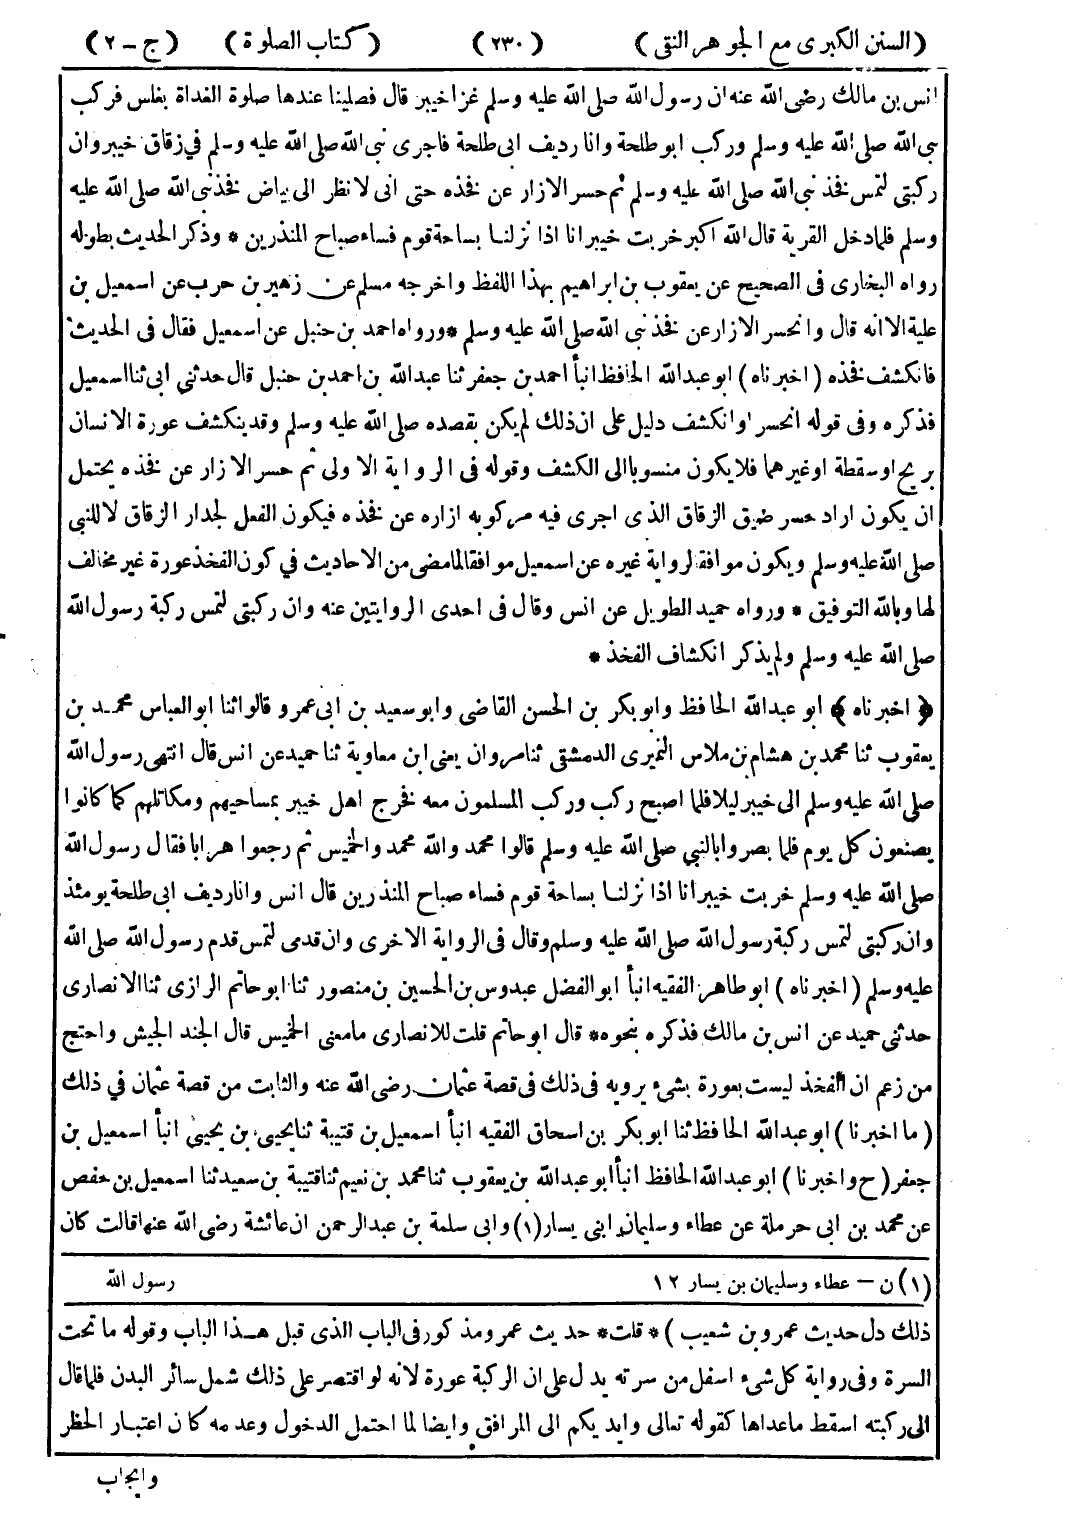 (السنن الكبرى مع الجوهر النقى) (٢٣٠) (كتاب الصلوة) (ج-٢)
انس بن مالك رضى الله عنه ان رسول الله صلى الله عليه وسلم غزا خيبر قال فصلينا عندها صلوة الغداة بغلس فركب
نبى الله صلى الله عليه وسلم وركب ابو طلحة وانا رديف ابى طلحة فاجرى نبى الله صلى الله عليه وسلم في زقاق خيبر وان
ركبتى لتمس فخذ نبى الله صلى الله عليه وسلم ثم حسر الازار عن فخذه حتى انى لا نظر الى بياض فخذ نبى الله صلى الله عليه
وسلم فلما دخل القرية قال الله اكبر خربت خيبر انا اذا نزلنا بساحة قوم فساء صباح المنذرين * وذكر الحديث بطوله
رواه البخارى فى الصحيح عن يعقوب بن ابراهيم بهذا اللفظ واخرجه مسلم عن زهير بن حرب عن اسمعيل بن
علية الا انه قال وانحسر الازار عن فخذ نبى الله صلى الله عليه وسلم * ورواه احمد بن حنبل عن اسمعيل فقال فى الحديث
فانكشف فخذه (اخبرناه) ابو عبدالله الحافظ انبأ احمد بن جعفر ثنا عبدالله بن احمد بن حنبل قال حدثني ابى ثنا اسمعيل
فذكره وفى قوله انحسر او انكشف دليل على ان ذلك لم يكن بقصده صلى الله عليه وسلم وقد ينكشف عورة الانسان
بريح او سقطة او غيرهما فلا يكون منسوبا الى الكشف وقوله فى الرواية الاولى ثم حسر الازار عن فخذه يحتمل
ان يكون اراد حسر ضيق الزقاق الذى اجرى فيه مركوبه ازاره عن فخذه فيكون الفعل لجدار الزقاق لا للنبى
صلى الله عليه وسلم ويكون موافقا لرواية غيره عن اسمعيل موافقا لما مضى من الاحاديث في كون الفخذ عورة غير مخالف
لها وبالله التوفيق * ورواه حميد الطويل عن انس وقال فى احدى الروايتين عنه وان ركبتى لتمس ركبة رسول الله
صلى الله عليه وسلم ولم يذكر انكشاف الفخذ *
﴿اخبرناه﴾ ابو عبدالله الحافظ وابو بكر بن الحسن القاضى وابو سعيد بن ابى عمرو قالوا ثنا ابو العباس محمد بن
يعقوب ثنا محمد بن هشام بن ملاس النميرى الدمشقى ثنا مروان يعنى ابن معاوية ثنا حميد عن انس قال انتهى رسول الله
صلى الله عليه وسلم الى خيبر ليلا فلما اصبح ركب وركب المسلمون معه فخرج اهل خيبر بمساحيهم ومكاتلهم كما كانوا
يصنعون كل يوم فلما بصروا بالنبى صلى الله عليه وسلم قالوا محمد والله محمد والخميس ثم رجعوا هرابا فقال رسول الله
صلى الله عليه وسلم خربت خيبر انا اذا نزلنا بساحة قوم فساء صباح المنذرين قال انس وانا رديف ابى طلحة يومئذ
وان ركبتى لتمس ركبة رسول الله صلى الله عليه وسلم وقال فى الرواية الاخرى وان قدمى لتمس قدم رسول الله صلى الله
عليه وسلم (اخبرناه) ابو طاهر الفقيه انبأ ابو الفضل عبدوس بن الحسين بن منصور ثنا ابو حاتم الرازى ثنا الانصارى
حدثنى حميد عن انس بن مالك فذكره بنحوه * قال ابو حاتم قلت للانصارى ما معنى الخميس قال الجند الجيش واحتج
من زعم ان الفخذ ليست بعورة بشىء يرويه فى ذلك فى قصة عثمان رضى الله عنه والثابت من قصة عثمان في ذلك
(ما اخبرنا) ابو عبدالله الحافظ ثنا ابو بكر بن اسحاق الفقيه انبأ اسمعيل بن قتيبة ثنا يحيى بن يحيى انبأ اسمعيل بن
جعفر (ح واخبرنا) ابو عبدالله الحافظ انبأ ابو عبدالله بن يعقوب ثنا محمد بن نعيم ثنا قتيبة بن سعيد ثنا اسمعيل بن حفص
عن محمد بن ابى حرملة عن عطاء وسليمان ابنى يسار (١) وابى سلمة بن عبد الرحمن ان عائشة رضى الله عنها قالت كان
(١) ن - عطاء وسليمان بن يسار ١٢ رسول الله
ذلك دل حديث عمرو بن شعيب) * قلت * حديث عمرو مذكور فى الباب الذى قبل هذا الباب وقوله ما تحت
السرة وفى رواية كل شىء اسفل من سرته يدل على ان الركبة عورة لانه لو اقتصر على ذلك شمل سائر البدن فلما قال
الى ركبته اسقط ما عداها كقوله تعالى وايديكم الى المرافق وايضا لما احتمل الدخول وعدمه كان اعتبار الحظر
وايجاب